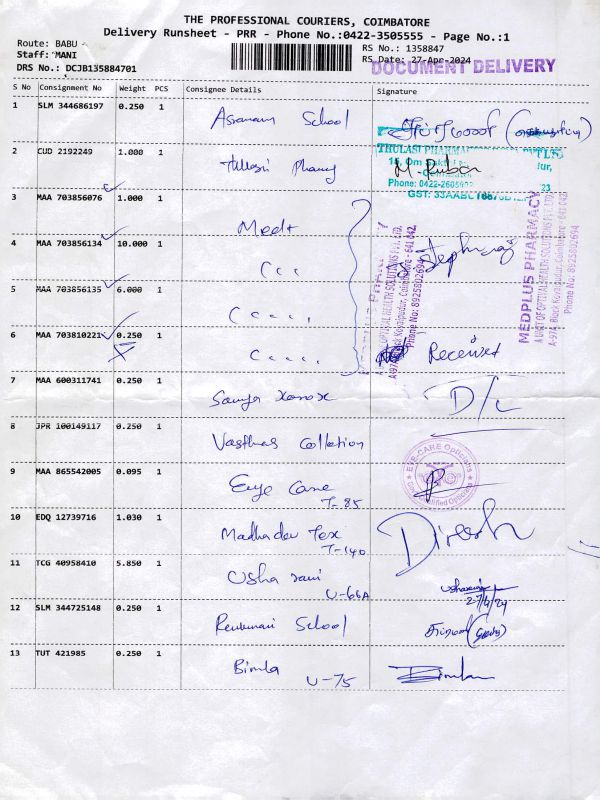 THE PROFESSIONAL COURIERS, COIMBATORE
Delivery Runsheet - PRR - Phone No.:0422-3505555 - Page No.:1
Route: BABU -
RS No.: 1358847
Staff: MANI
RS Date: 27-Apr-2024
DRS No.: DCJB135884701
DOCUMENT DELIVERY
S No Consignment No Weight PCS Consignee Details Signature
1 SLM 344686197 0.250 1 Asramam School
2 CUD 2192249 1.000 1 M. Ruban
THULASI PHARMA
Phone: 0422-2605
GST: 33AABC
3 MAA 703856076 1.000 1 Med+
4 MAA 703856134 10.000 1 Stephnraj
5 MAA 703856135 6.000 1
6 MAA 703810221 0.250 1 Received
MEDPLUS PHARMACY
A UNIT OF OPTIVAL HEALTH SOLUTIONS PVT. LTD.
A-97A, Black Kovaipudur, Coimbatore - 641 042.
Phone No: 8925802694
7 MAA 600311741 0.250 1 D/L
8 JPR 100149117 0.250 1 Vasthas Collection
9 MAA 865542005 0.095 1 Eye Care
T-85
EYE-CARE Opticals
10 EDQ 12739716 1.030 1 Madhadev Tex Dinesh
T-140
11 TCG 40958410 5.850 1 Usha rani
U-66A
27/4/24
12 SLM 344725148 0.250 1 School
13 TUT 421985 0.250 1 Bimla Bimla
U-75